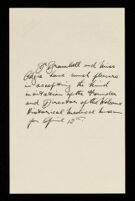 Dr Bramwell and Miss
have much pleasure
in accepting the kind
invitation of the Founder
and Director of the Wellcome
Historical Medical Museum
for April 12th.